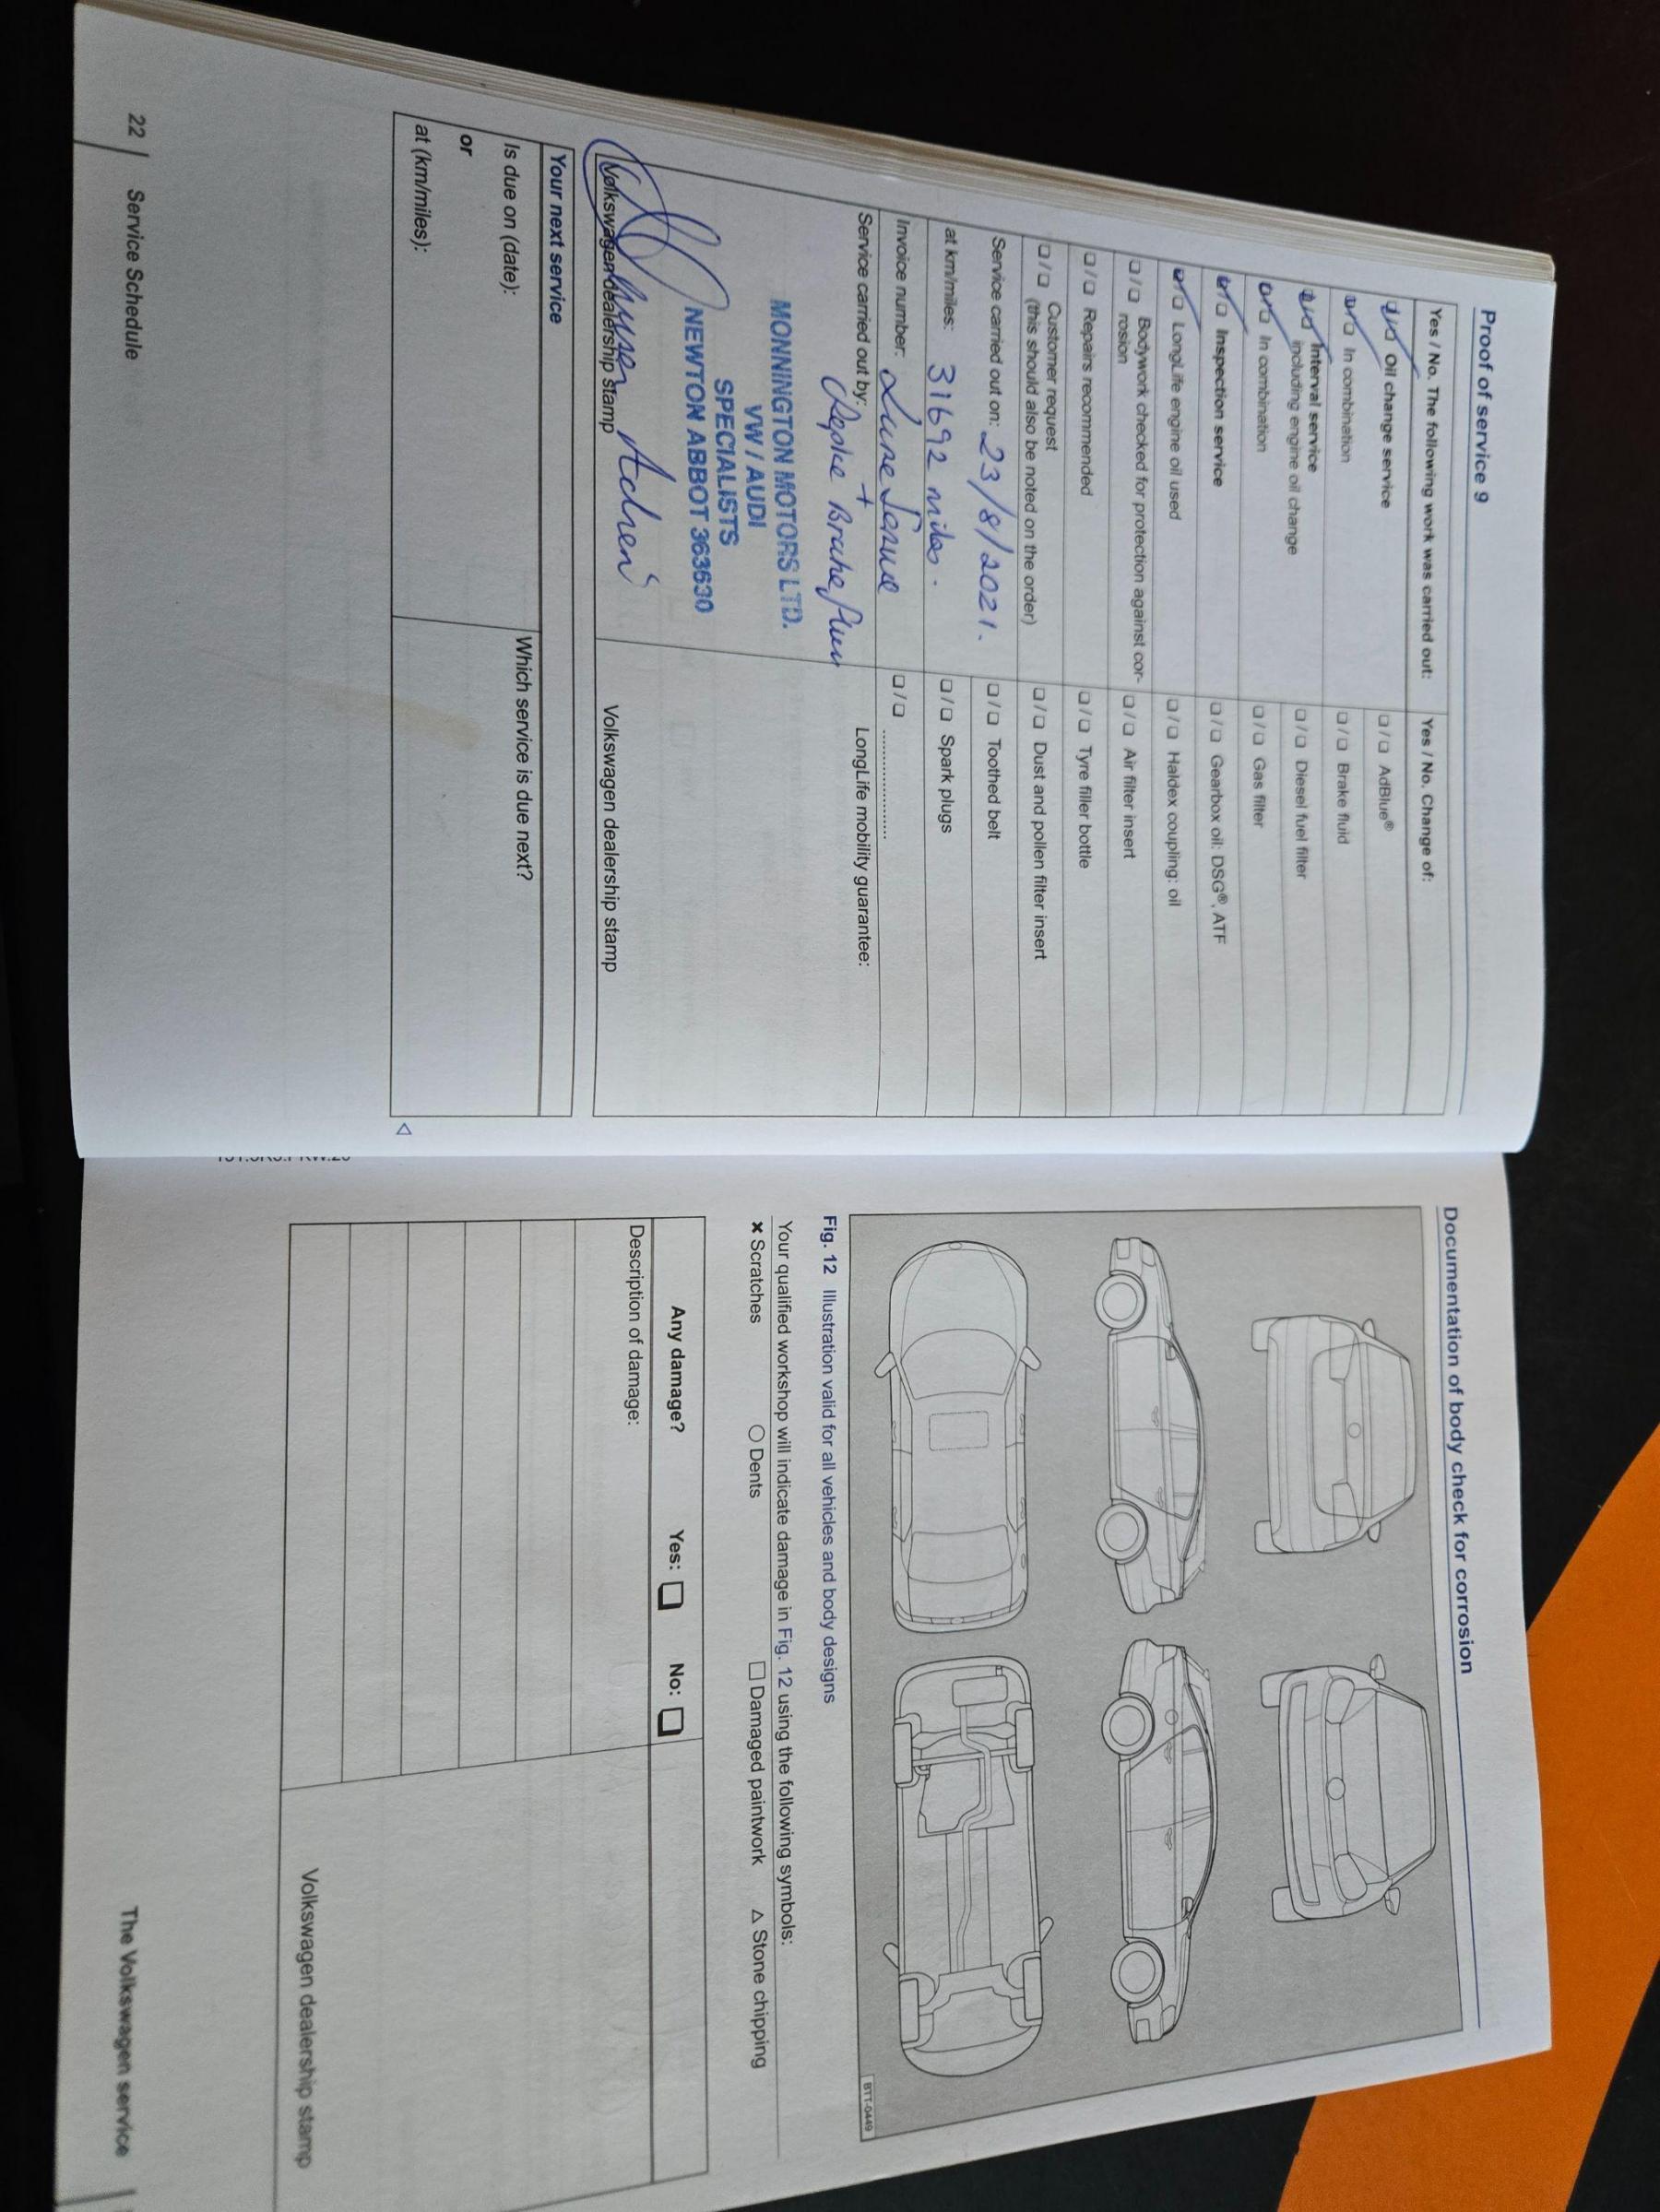 Proof of service 9
Yes / No. The following work was carried out:
Oil change service
In combination
Interval service
including engine oil change
In combination
Inspection service
LongLife engine oil used
Bodywork checked for protection against cor-
rosion
Repairs recommended
Customer request
(this should also be noted on the order)
Service carried out on: 23/8/2021.
at km/miles: 31692 miles.
Invoice number:
Service carried out by:
+ Brake
MONNINGTON MOTORS LTD.
VW / AUDI
SPECIALISTS
NEWTON ABBOT 363630
Volkswagen dealership stamp
Yes / No. Change of:
AdBlue®
Brake fluid
Diesel fuel filter
Gas filter
Gearbox oil: DSG®, ATF
Haldex coupling: oil
Air filter insert
Tyre filler bottle
Dust and pollen filter insert
Toothed belt
Spark plugs
....................
LongLife mobility guarantee:
Volkswagen dealership stamp
Your next service
Is due on (date):
or
at (km/miles):
Which service is due next?
22 | Service Schedule
Documentation of body check for corrosion
BTT-0449
Fig. 12 Illustration valid for all vehicles and body designs
Your qualified workshop will indicate damage in Fig. 12 using the following symbols:
× Scratches ○ Dents □ Damaged paintwork △ Stone chipping
Any damage? Yes: □ No: □
Description of damage:
Volkswagen dealership stamp
The Volkswagen service